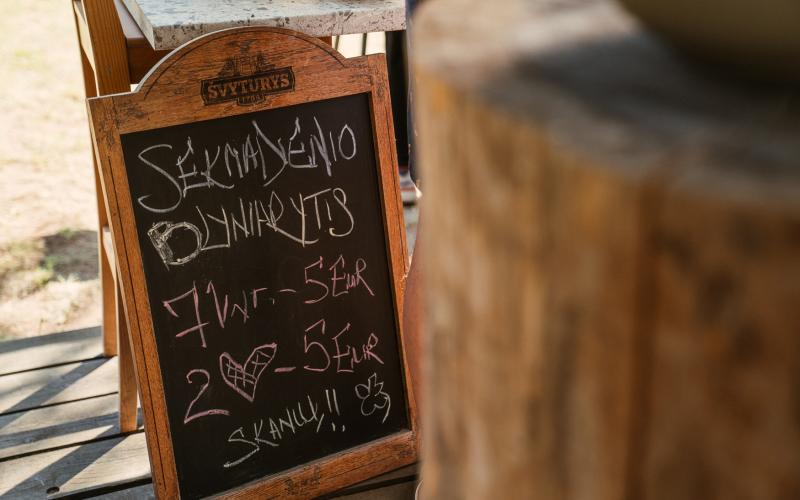 SVYTURYS
1784
SEKMADENIO
BLYNIARYTIS
7 VNT. - 5 EUR
2 ♥ - 5 EUR
SKANUU!!